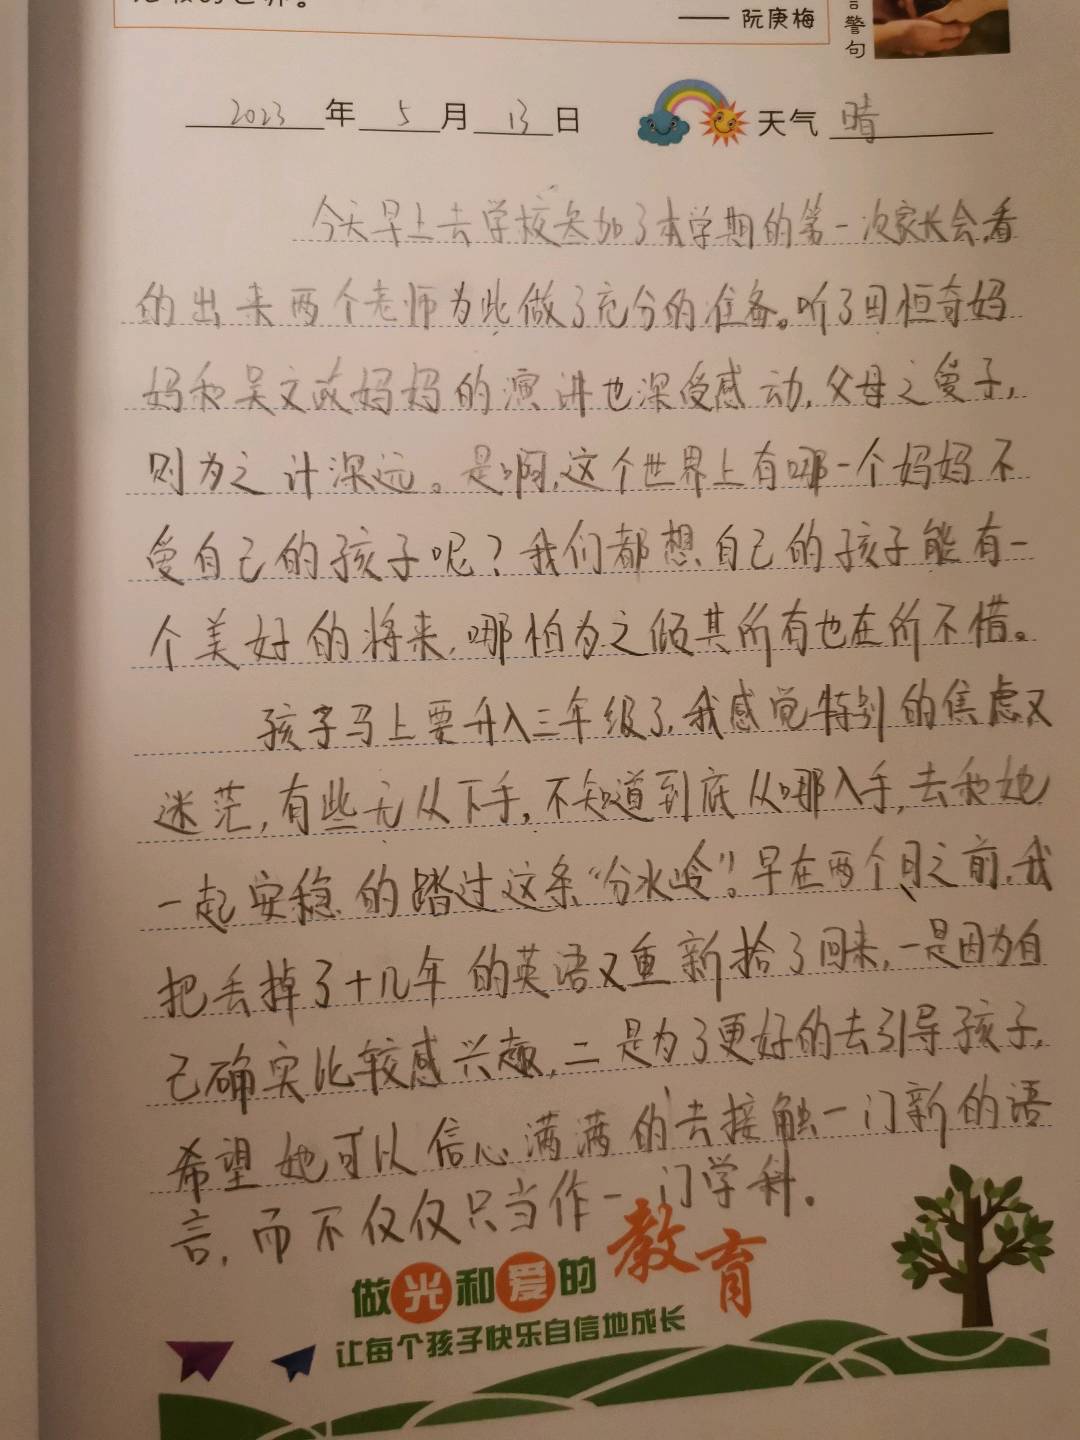 —— 阮庚梅
言警句
2023年5月13日 天气 晴
今天早上去学校参加了本学期的第一次家长会,看
的出来两个老师为此做了充分的准备。听了田恒奇妈
妈和吴文政妈妈的演讲也深受感动,父母之爱子,
则为之计深远。是啊,这个世界上有哪一个妈妈不
爱自己的孩子呢?我们都想自己的孩子能有一
个美好的将来,哪怕为之倾其所有也在所不惜。
孩子马上要升入三年级了,我感觉特别的焦虑又
迷茫,有些无从下手,不知道到底从哪入手,去和她
一起安稳的踏过这条“分水岭”。早在两个月之前,我
把丢掉了十几年的英语又重新拾了回来,一是因为自
己确实比较感兴趣,二是为了更好的去引导孩子,
希望她可以信心满满的去接触一门新的语
言,而不仅仅只当作一门学科。
做光和爱的教育
让每个孩子快乐自信地成长